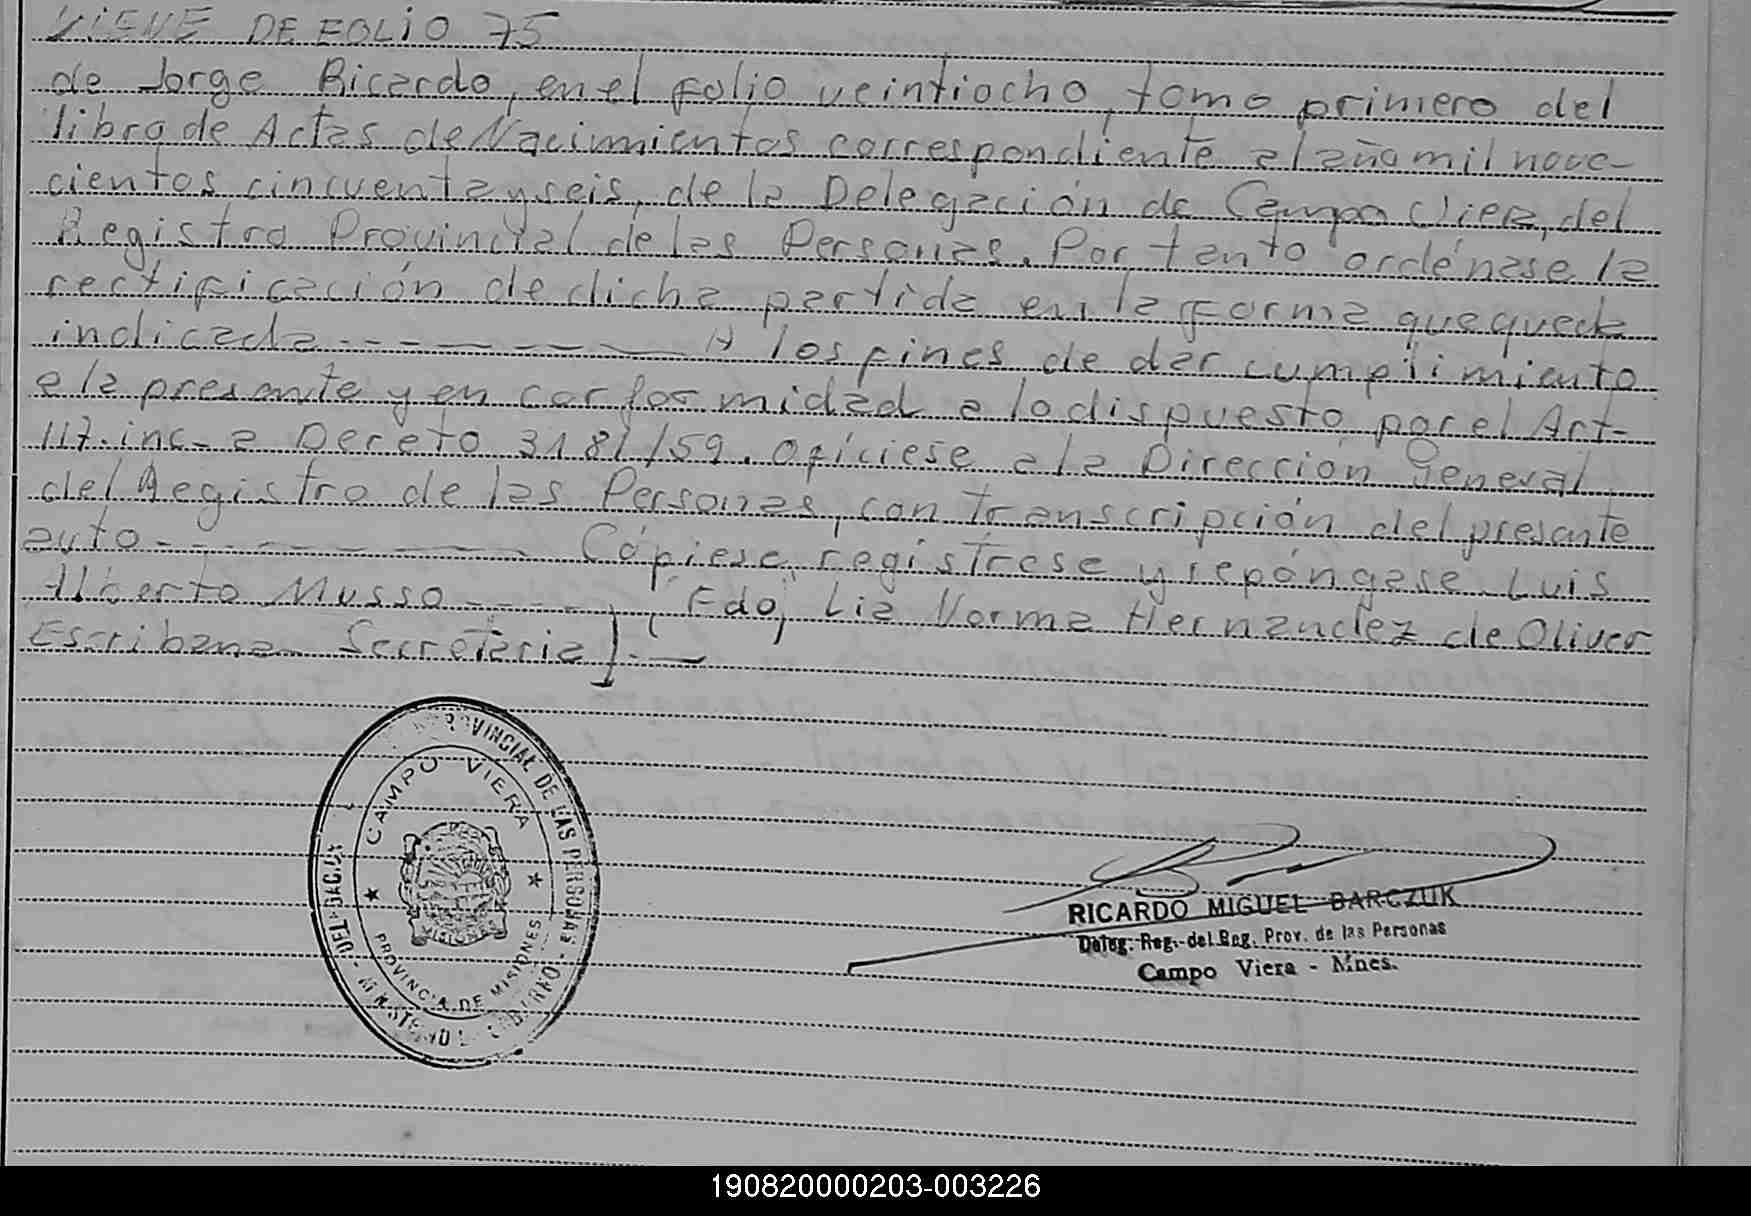 VIENE DE FOLIO 75
de Jorge Ricardo, en el folio veintiocho, tomo primero del
libro de Actas de Nacimientos correspondiente al año mil nove-
cientos cincuenta y seis, de la Delegación de Campo Viera, del
Registro Provincial de las Personas. Por tanto ordénase la
rectificación de dicha partida en la forma que queda
indicada - - - - - - - A los fines de dar cumplimiento
a la presente y en conformidad a lo dispuesto por el Art-
117. inc- a Decreto 3181/59. ofíciese a la Dirección General
del Registro de las Personas, con transcripción del presente
auto - - - - - - - Cópiese, regístrese y repóngase. Luis
Alberto Musso - - - - - (Fdo) Lia Norma Hernandez de Oliver
Escribana Secretaria]. —
PROVINCIAL DE LAS PERSONAS
CAMPO VIERA
MISIONES
PROVINCIA DE MISIONES
RICARDO MIGUEL BARCZUK
Deleg. Reg. del Reg. Prov. de las Personas
Campo Viera - Mnes.
190820000203-003226